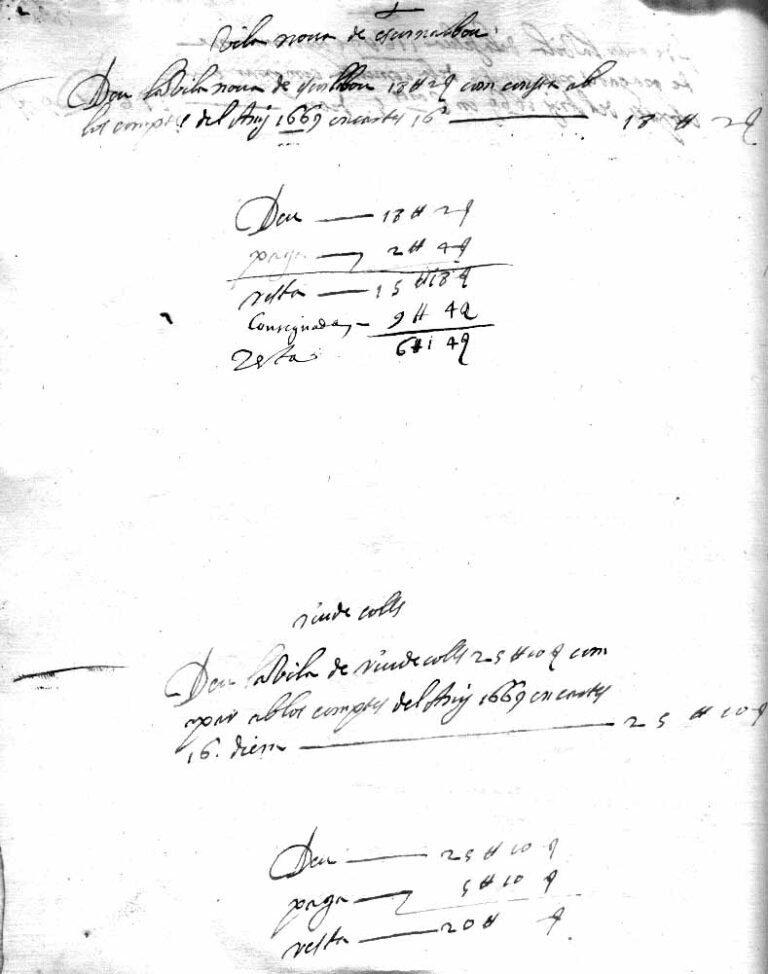 Vila nova de escornalbou
Deu la Vila nova de escornalbou 18 ₶ 2 § com consta ab
los comptes del Any 1669 en cartes 16 — 18 ₶ 2 §
Deu — 18 ₶ 2 §
paga — 2 ₶ 4 §
resta — 15 ₶ 18 §
Consignada, — 9 ₶ 4 §
Resta 6 ₶ 14 §
riudecolls
Deu la Vila de riudecolls 25 ₶ 10 § com
apar ab los comptes del Any 1669 en cartes
16. — 25 ₶ 10 §
Deu — 25 ₶ 10 §
paga — 5 ₶ 10 §
resta — 20 ₶ §